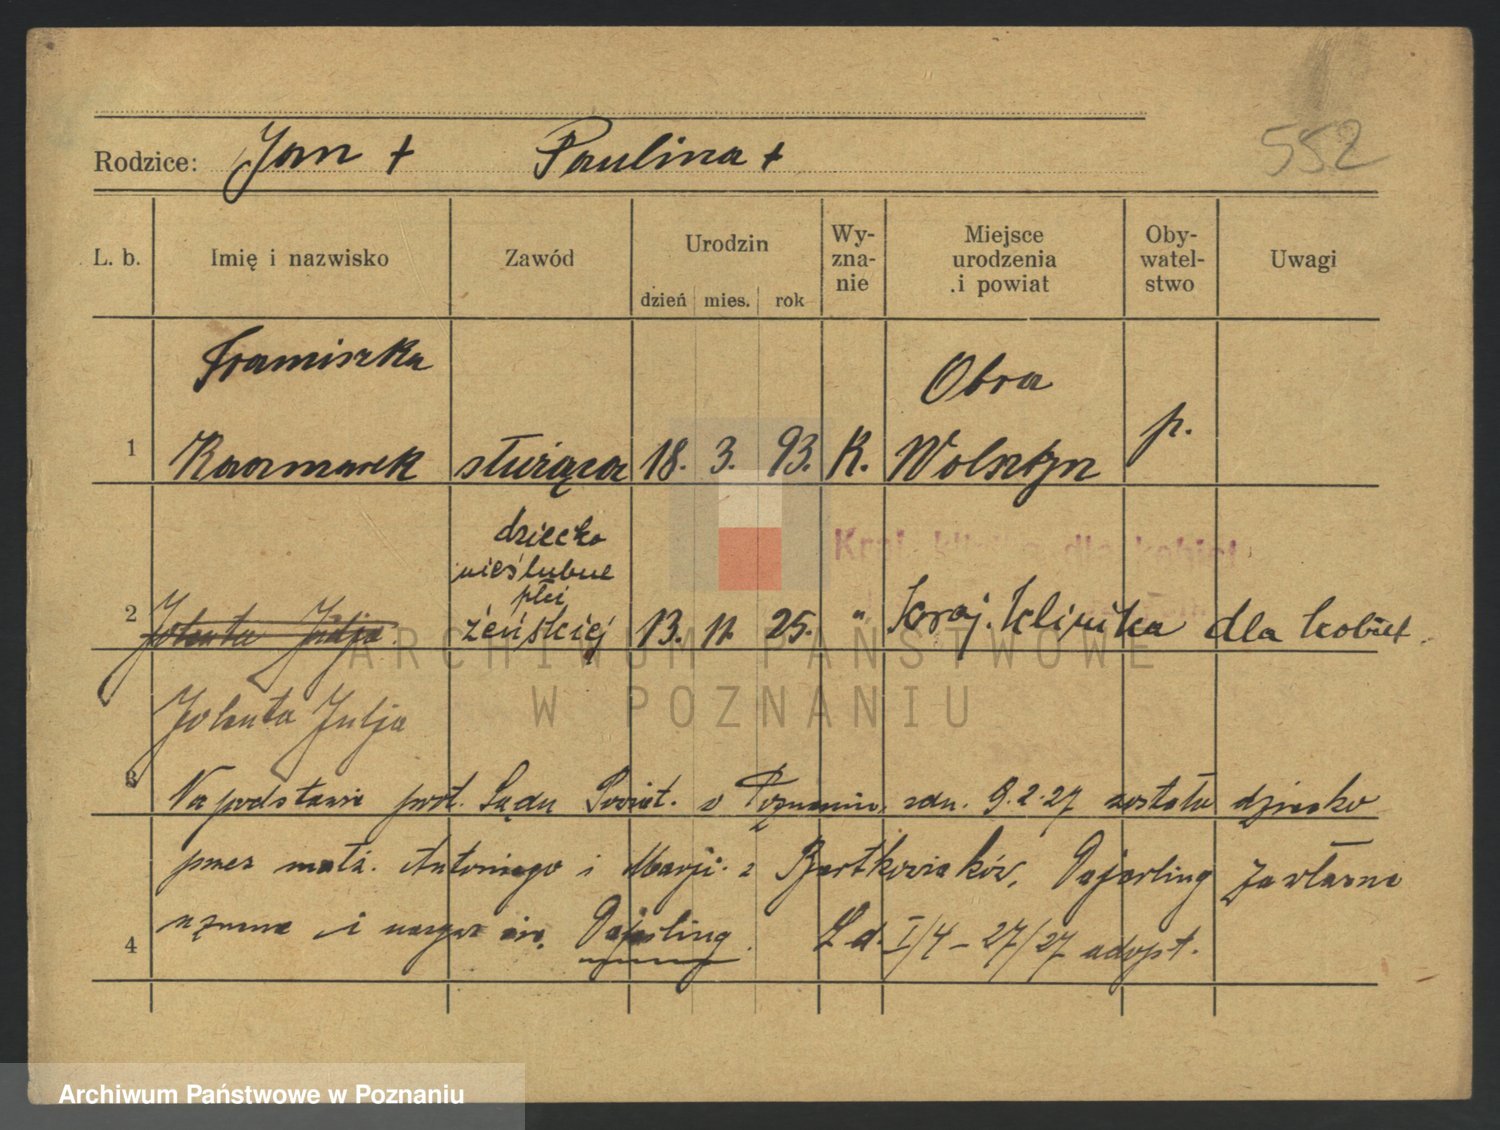 552
Rodzice: Jan + Paulina +
L. b. Imię i nazwisko Zawód Urodzin Wy-zna-nie Miejsce urodzenia i powiat Oby-watel-stwo Uwagi
dzień mies. rok
Franciszka Obra
1 Kaczmarek służąca 18. 3. 93. K. Wolsztyn p.
dziecko
nieślubne
płci
Kraj. klinika dla kobiet
2 Jolenta Julja żeńskiej 13. 11. 25. " Kraj. Klinika dla kobiet.
ARCHIWUM PAŃSTWOWE
W POZNANIU
Jolenta Julja
3 Na podstawie prot. Sądu Powiat. w Poznaniu, zdn. 9.2.27 zostało dziecko
przez małż. Antoniego i Marji z Bartkowiaków, Dajerling za własne
4 uznane i nazywa się Dajerling. L. d. I/4 - 27/27 adopt.
Archiwum Państwowe w Poznaniu